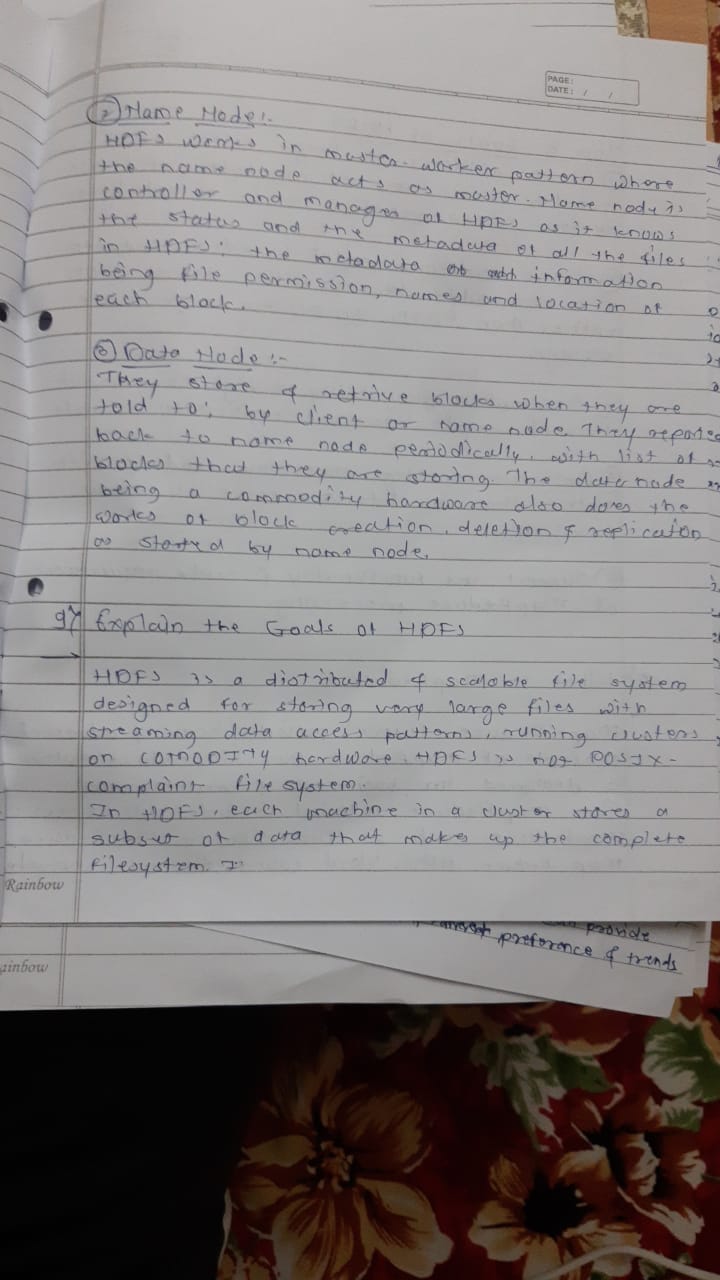 PAGE:
DATE: / /
② Name Node:-
HDFS works in master-worker pattern where
the name node acts as master. Name node is
controller and manager of HDFS as it knows
the status and the metadata of all the files
in HDFS; the metadata information
being file permission, names and location of
each block.
③ Data Node :-
They store & retrive blocks when they are
told to; by client or name node. They reported
back to name node periodically, with list of
blocks that they are storing. The data node
being a commodity hardware also does the
works of block creation, deletion & replicaton
as stated by name node.
97 Explain the Goals of HDFS
HDFS is a distributed & scalable file system
designed for storing very large files with
streaming data access patterns, running clusters
on COMODITY hardware. HDFS is not POSIX-
complaint file system.
In HDFS, each machine in a cluster stores a
subset of data that makes up the complete
filesystem.
Rainbow
provide
preference & trends
ainbow